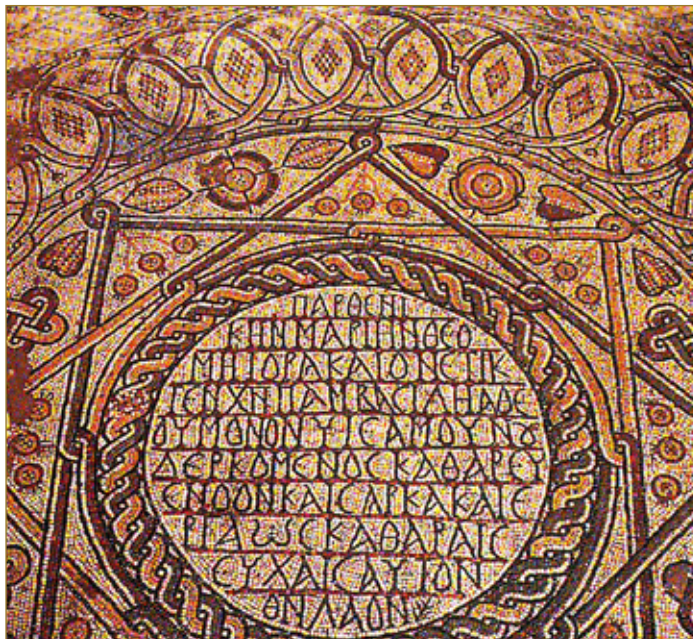 ΠΑΡΘΕΝΙ
ΚΗΝΜΑΡΙΗΝΘΕΟ
ΜΗΤΟΡΑΚΑΙΟΝΕΤΙΚ
ΤΕΝΧΝΠΑΜΒΑCΙΛΗΑΘΕ
ΟΥΜΟΝΟΝΥΙΕΑΜΟΥΝΟΥ
ΔΕΡΚΟΜΕΝΟCΚΑΘΑΡΕΥ
ΕΝΟΟΝΚΑΙCΑΡΚΑΚΑΙΕ
ΡΓΑΩCΚΑΘΑΡΑΙC
ΕΥΧΑΙCΑΥΤΟΝ
ΘΝΛΑΟΝ